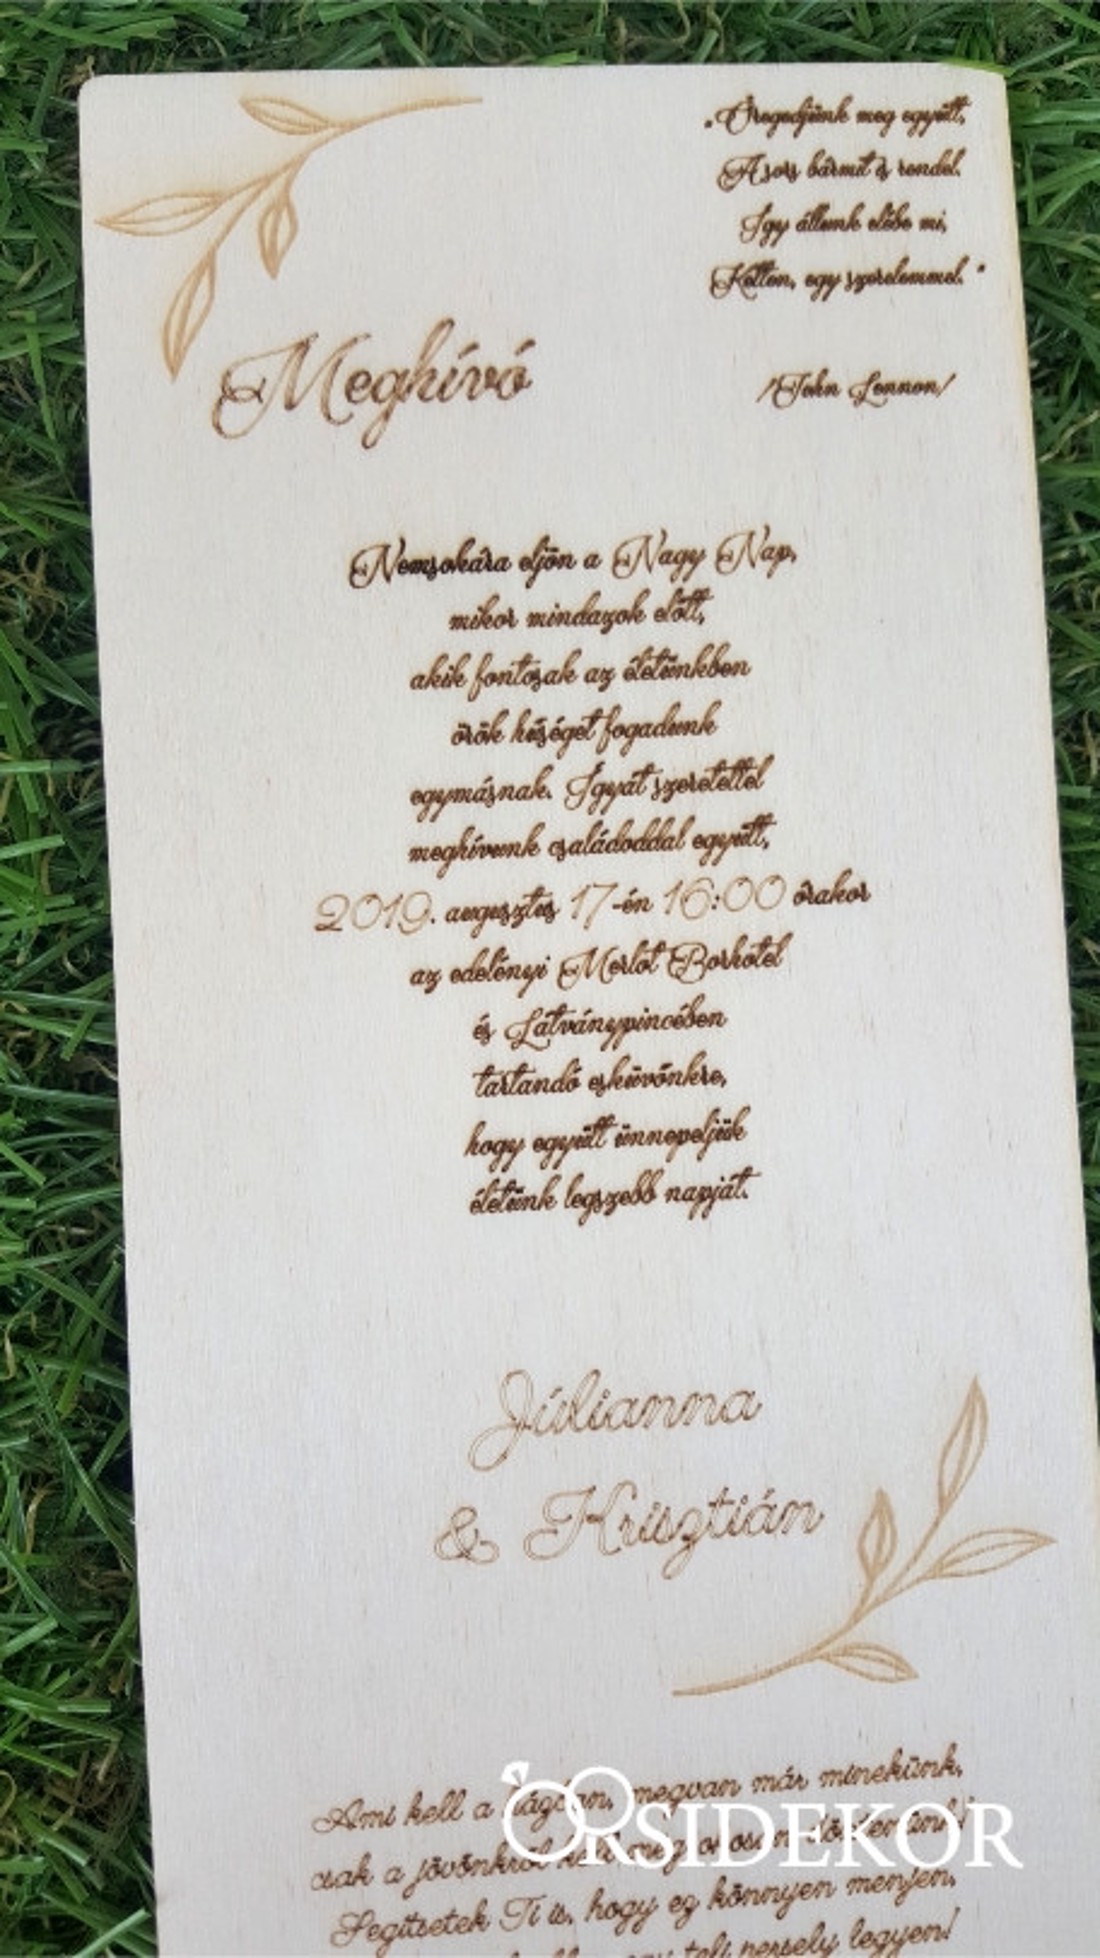 „Öregedjünk meg együtt,
A sors bármit is rendel.
Így állunk elébe mi,
Ketten, egy szerelemmel. "
/John Lennon/
Meghívó
Nemsokára eljön a Nagy Nap,
mikor mindazok előtt,
akik fontosak az életünkben
örök hűséget fogadunk
egymásnak. Ígyát szeretettel
meghívunk családoddal együtt,
2019. augusztus 17-én 16:00 órakor
az edelényi Merlot Borhotel
és Látványpincében
tartandó esküvőnkre,
hogy együtt ünnepeljük
életünk legszebb napját.
Júlianna
& Krisztián
Ami kell a házban, megvan már minekünk,
csak a jövőnkről kell még okosan döntenünk!
Segítsetek Ti is, hogy ez könnyen menjen,
egy teli persely legyen!
ORSIDEKOR